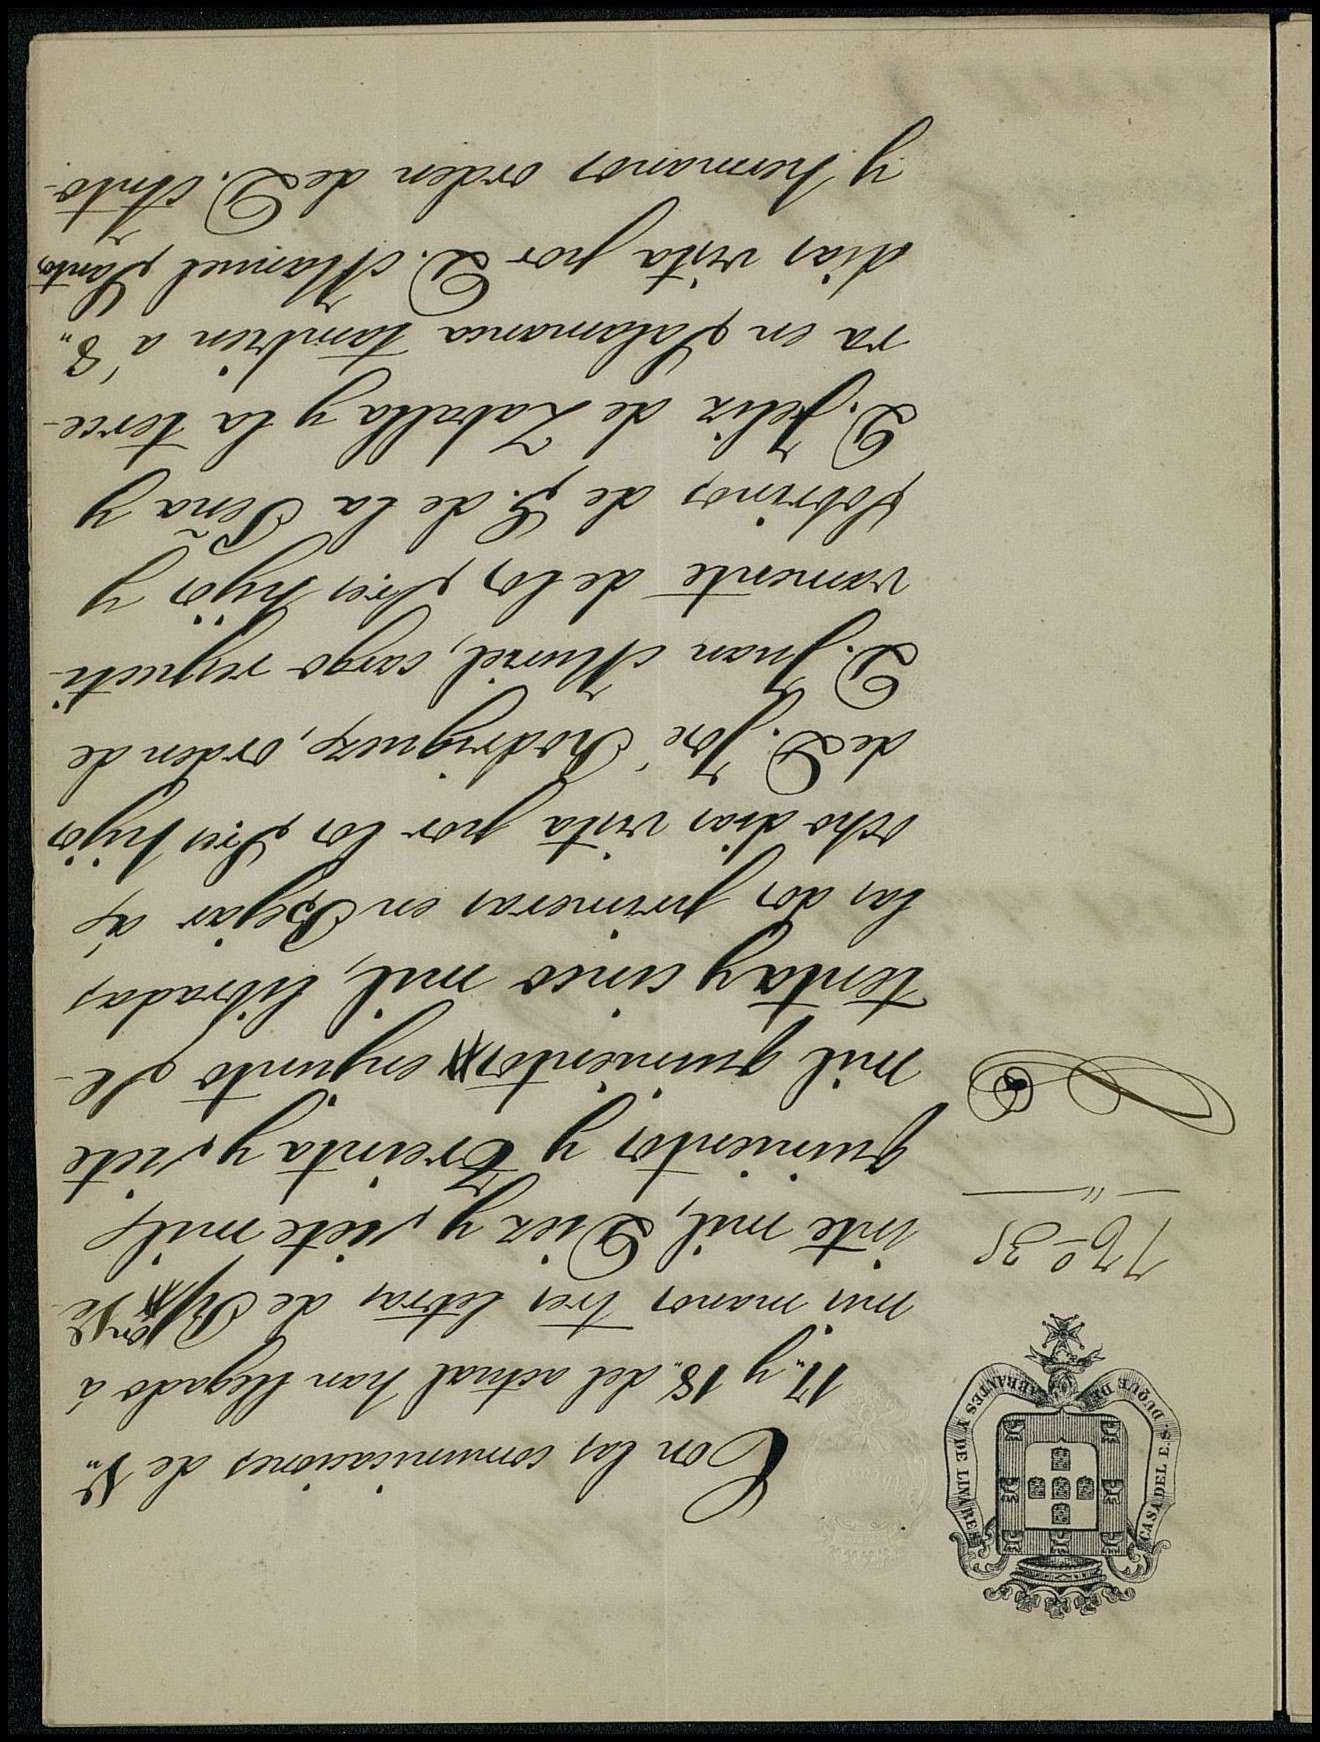 CASA DEL E.S. DUQUE DE ABRANTES Y DE LINARES
Con las comunicaciones de V.
17,, y 18,, del actual han llegado á
mis manos tres letras de Rs von Ve
inte mil, Diez y siete mil
quinientos y Treinta y siete
mil quinientos en junto Se-
tenta y cinco mil, libradas
las dos primeras en Bejar á
ocho dias vista por los Sres hijos
de D. José Rodriguez, orden de
D. Juan Muriel, cargo respecti-
vamente de los Sres hijos y
Sobrinos de G. de la Peña y
D. Felix de Zaballa y la terce-
ra en Salamanca tambien á 8,,
dias vista por D. Manuel Santos
y hermanos orden de D. Anto-